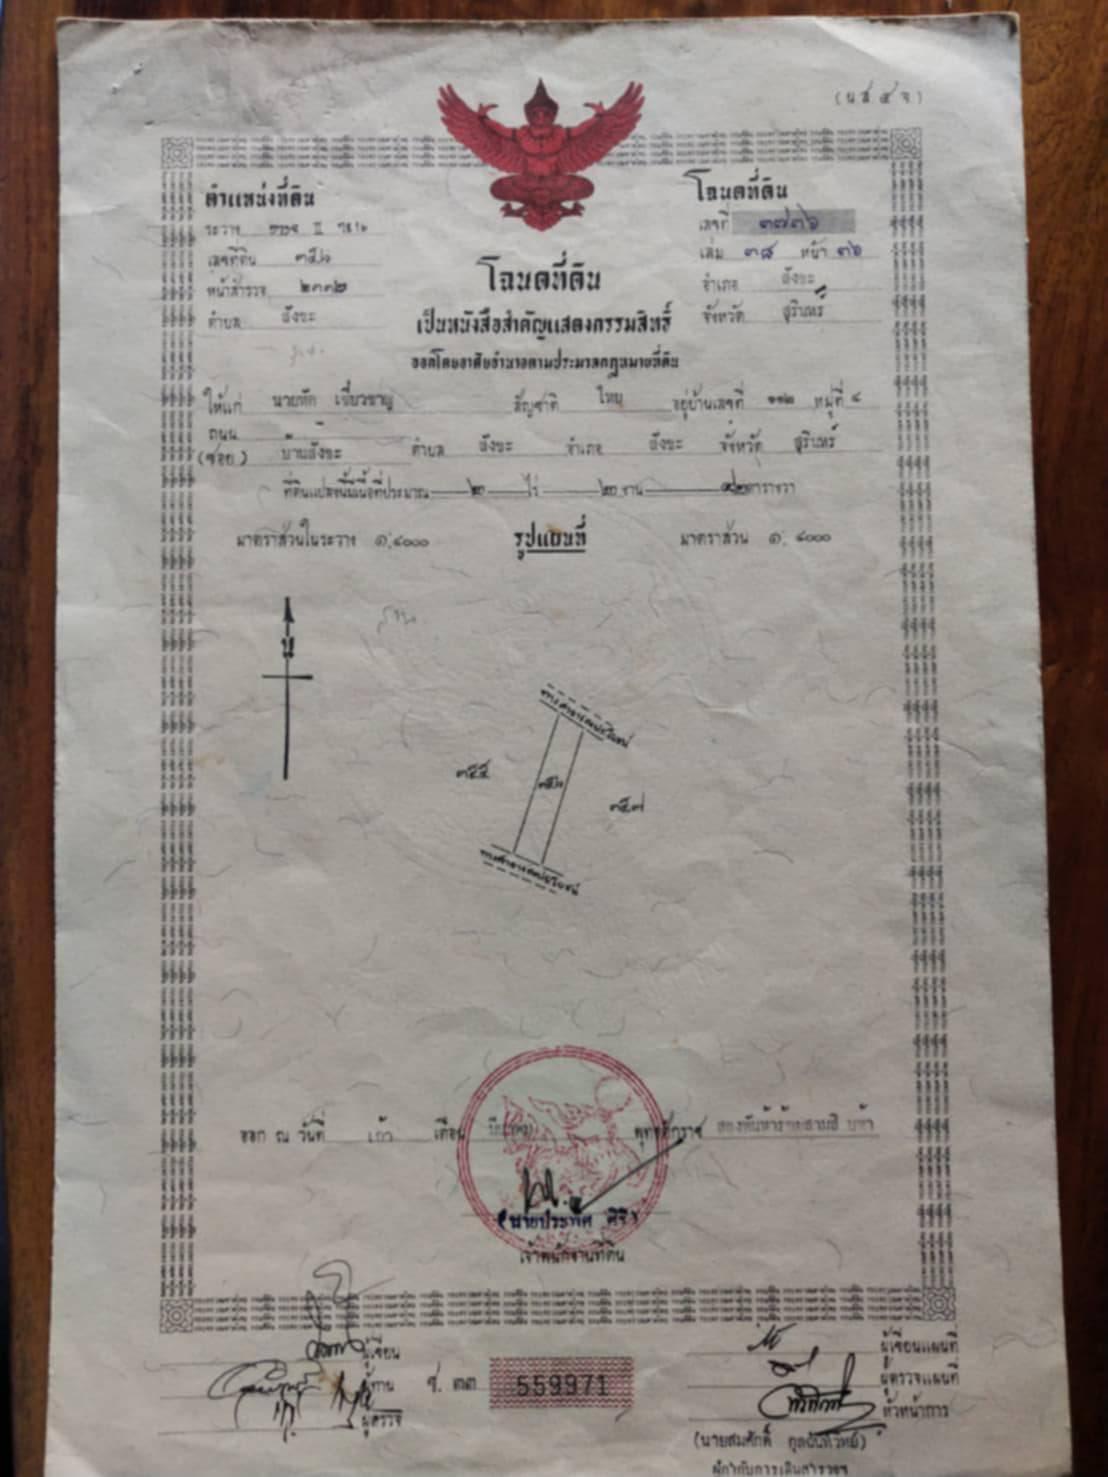 (น.ส. ๕ จ.)
ตำแหน่งที่ดิน
ระวาง
เลขที่ดิน ๓๕๖
หน้าสำรวจ ๒๓๓๒
ตำบล สังขะ
โฉนดที่ดิน
เลขที่ ๓๗๓๖
เล่ม ๓๘ หน้า ๓๖
อำเภอ สังขะ
จังหวัด สุรินทร์
โฉนดที่ดิน
เป็นหนังสือสำคัญแสดงกรรมสิทธิ์
ออกโดยอาศัยอำนาจตามประมวลกฎหมายที่ดิน
ให้แก่ นายทัด เชี่ยวชาญ สัญชาติ ไทย อยู่บ้านเลขที่ ๑๑๒ หมู่ที่ ๔
ถนน -
(ซอย) บ้านสังขะ ตำบล สังขะ อำเภอ สังขะ จังหวัด สุรินทร์
ที่ดินแปลงนี้มีเนื้อที่ประมาณ ๒ ไร่ งาน ตารางวา
มาตราส่วนในระวาง ๑:๔๐๐๐ รูปแผนที่ มาตราส่วน ๑:๔๐๐๐
น
ทางสาธารณประโยชน์
๓๕๕ ๓๕๖ ๓๕๗
ทางสาธารณประโยชน์
ออก ณ วันที่ เก้า เดือน พุทธศักราช สองพันห้าร้อยสามสิบห้า
เจ้าพนักงานที่ดิน
ผู้เขียน
ผู้ทาน
ผู้ตรวจ
559971
ผู้เขียนแผนที่
ผู้ตรวจแผนที่
หัวหน้าการ
(นายสมศักดิ์
ผู้กำกับการเดินสำรวจฯ